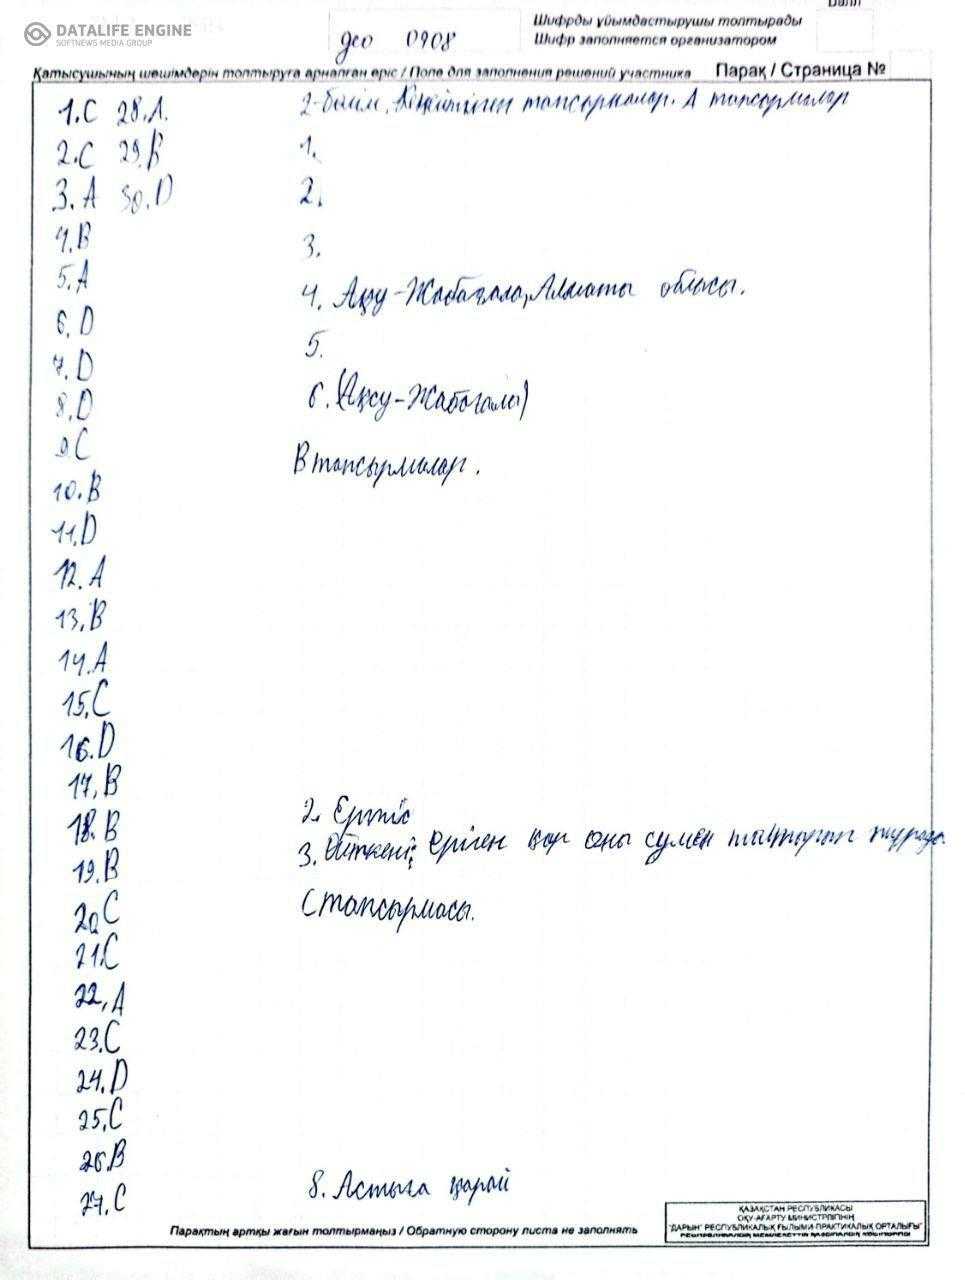 DATALIFE ENGINE
SOFTNEWS MEDIA GROUP
гео 0908
Шифрды ұйымдастырушы толтырады
Шифр заполняется организатором
Қатысушының шешімдерін толтыруға арналған өріс / Поле для заполнения решений участника Парақ / Страница №
1.C 28.A.
2.C 29.B
3.A 30.D
4.B
5.A
6.D
7.D
8.D
9.C
10.B
11.D
12.A
13.B
14.A
15.C
16.D
17.B
18.B
19.B
20.C
21.C
22.A
23.C
24.D
25.C
26.B
27.C
2-бөлім. тапсырмалар. А тапсырмалар
1.
2.
3.
4. Ақсу-Жабағлы, Алматы облысы.
5.
6. (Ақсу-Жабағалы)
В тапсырмалар.
2. Ертіс
3. Өйткені, еріген қар оны сумен
С тапсырмасы.
8. Астыға қарай
Парақтың артқы жағын толтырмаңыз / Обратную сторону листа не заполнять
ҚАЗАҚСТАН РЕСПУБЛИКАСЫ
ОҚУ-АҒАРТУ МИНИСТРЛІГІНІҢ
"ДАРЫН" РЕСПУБЛИКАЛЫҚ ҒЫЛЫМИ-ПРАКТИКАЛЫҚ ОРТАЛЫҒЫ"
РЕСПУБЛИКАЛЫҚ МЕМЛЕКЕТТІК ҚАЗЫНАЛЫҚ КӘСІПОРНЫ